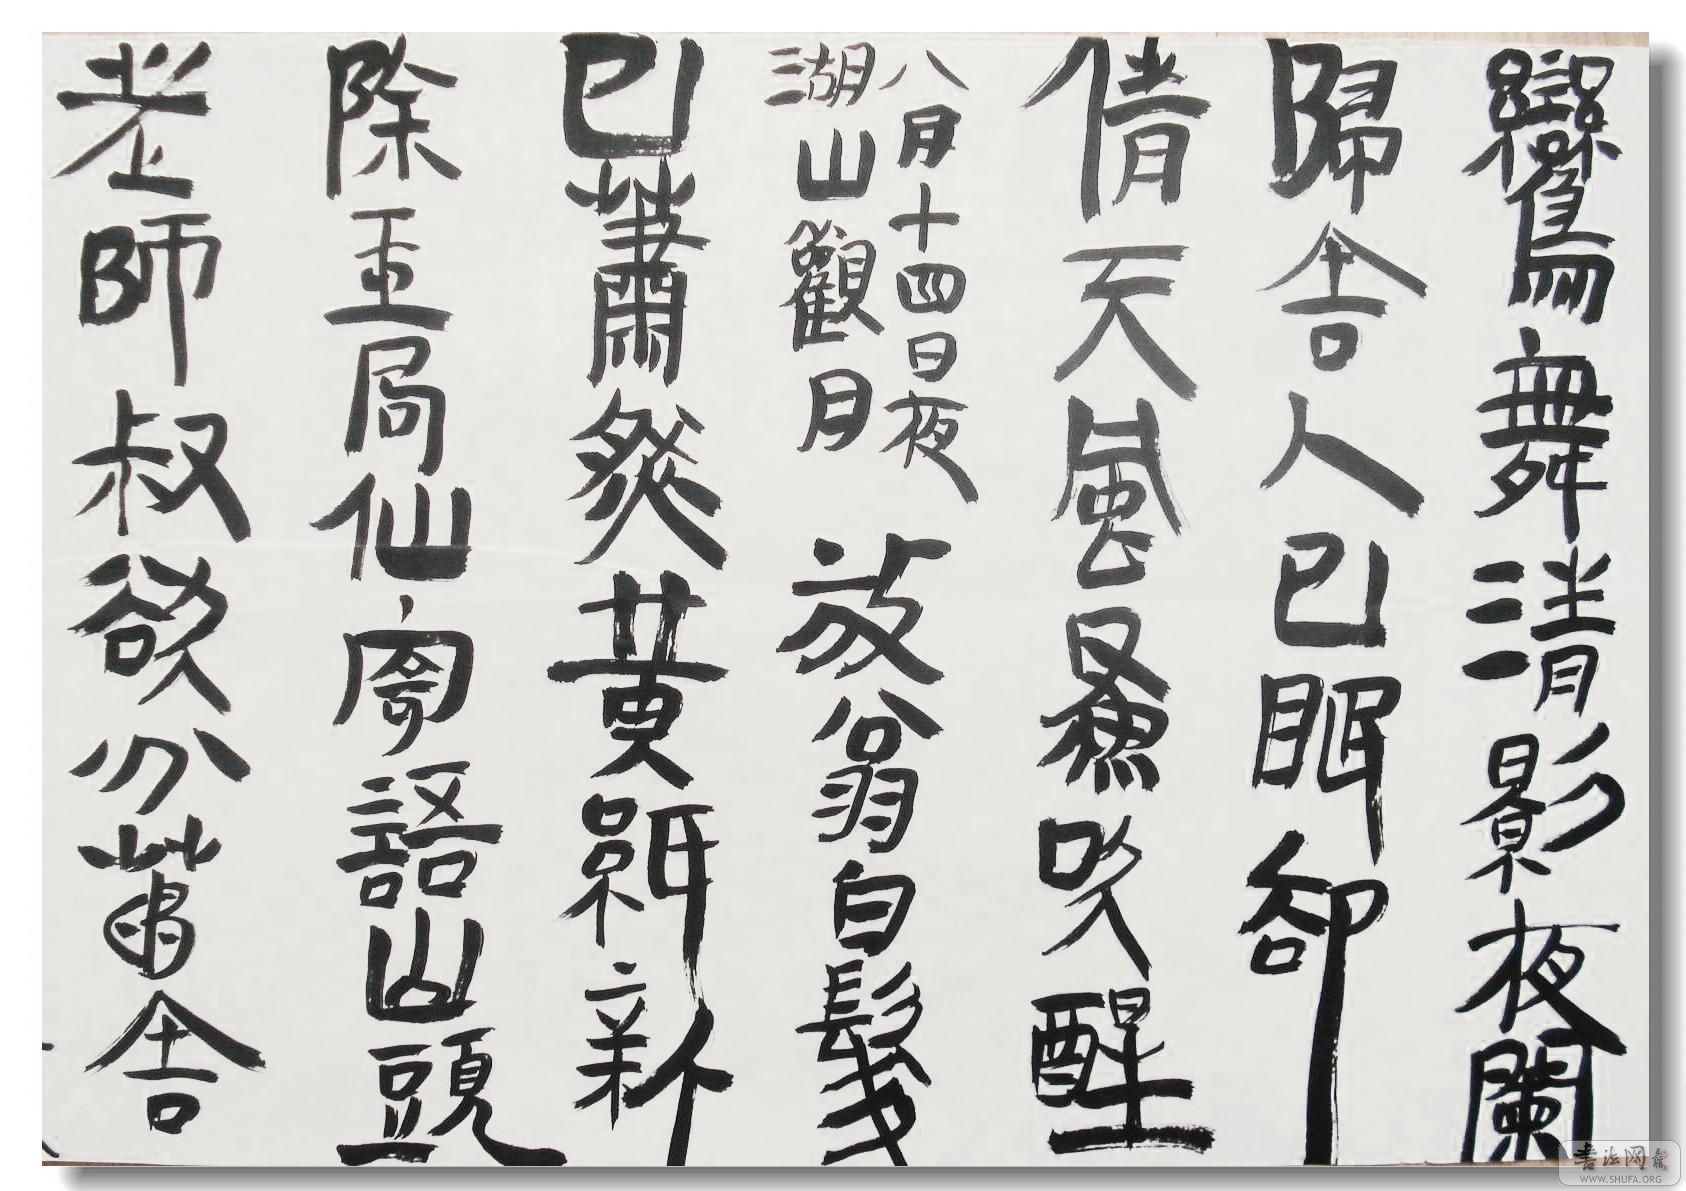 鸞舞清影夜闌
歸舍人已眠卻
倩天風吹醒
八月十四日夜
湖山觀月
放翁白髮
已蕭然黃紙新
除玉局仙寄語山頭
老師叔欲分舍
書法网
WWW.SHUFA.ORG